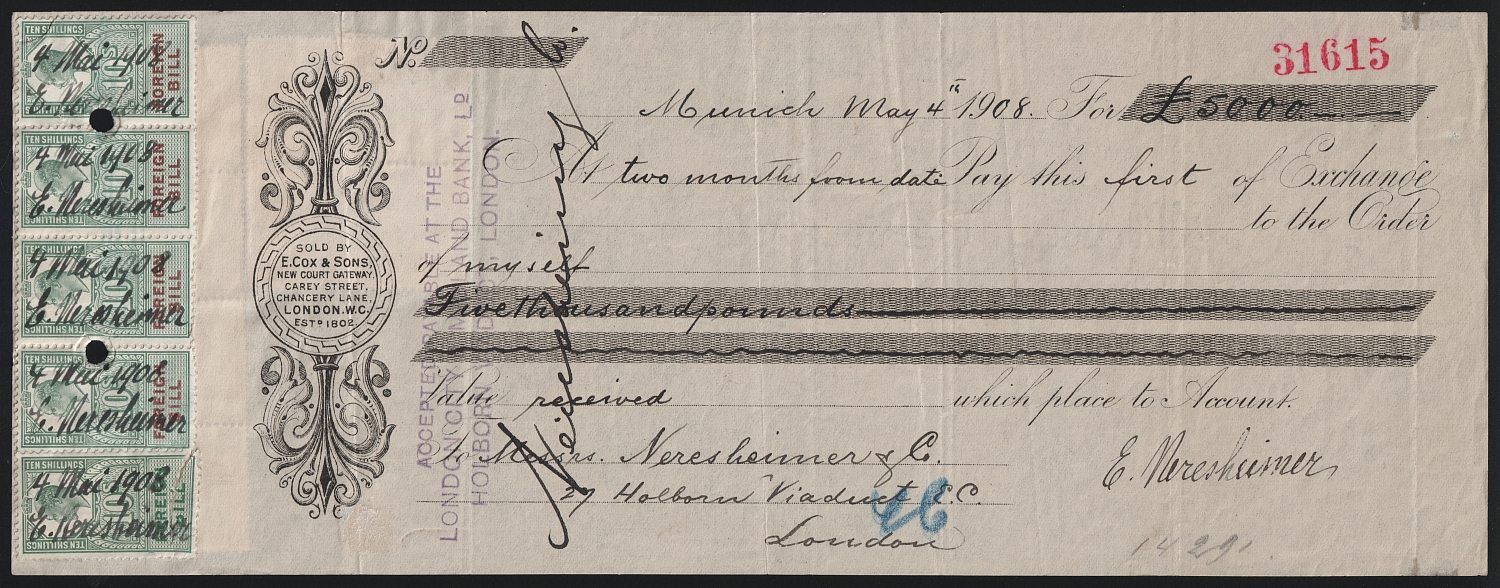 TEN SHILLINGS
4 Mai 1908
FOREIGN BILL
TEN SHILLINGS
4 Mai 1908
E. Neresheimer
FOREIGN BILL
TEN SHILLINGS
TEN SHILLINGS
4 Mai 1908
E. Neresheimer
FOREIGN BILL
TEN SHILLINGS
TEN SHILLINGS
4 Mai 1908
E. Neresheimer
FOREIGN BILL
TEN SHILLINGS
TEN SHILLINGS
4 Mai 1908
E. Neresheimer
FOREIGN BILL
TEN SHILLINGS
SOLD BY
E. COX & SONS,
NEW COURT GATEWAY,
CAREY STREET,
CHANCERY LANE,
LONDON. W.C.
ESTD 1802
ACCEPTED PAYABLE AT THE
LONDON CITY & MIDLAND BANK, LD
HOLBORN LONDON.
Neresheimer & Co.
No.
31615
Munich May 4th 1908. For £5000
At two months from date Pay this first of Exchange
to the Order
of myself
Five thousand pounds
Value received which place to Account.
To Messrs. Neresheimer & C.
E. Neresheimer
27 Holborn Viaduct E.C.
London
14291.